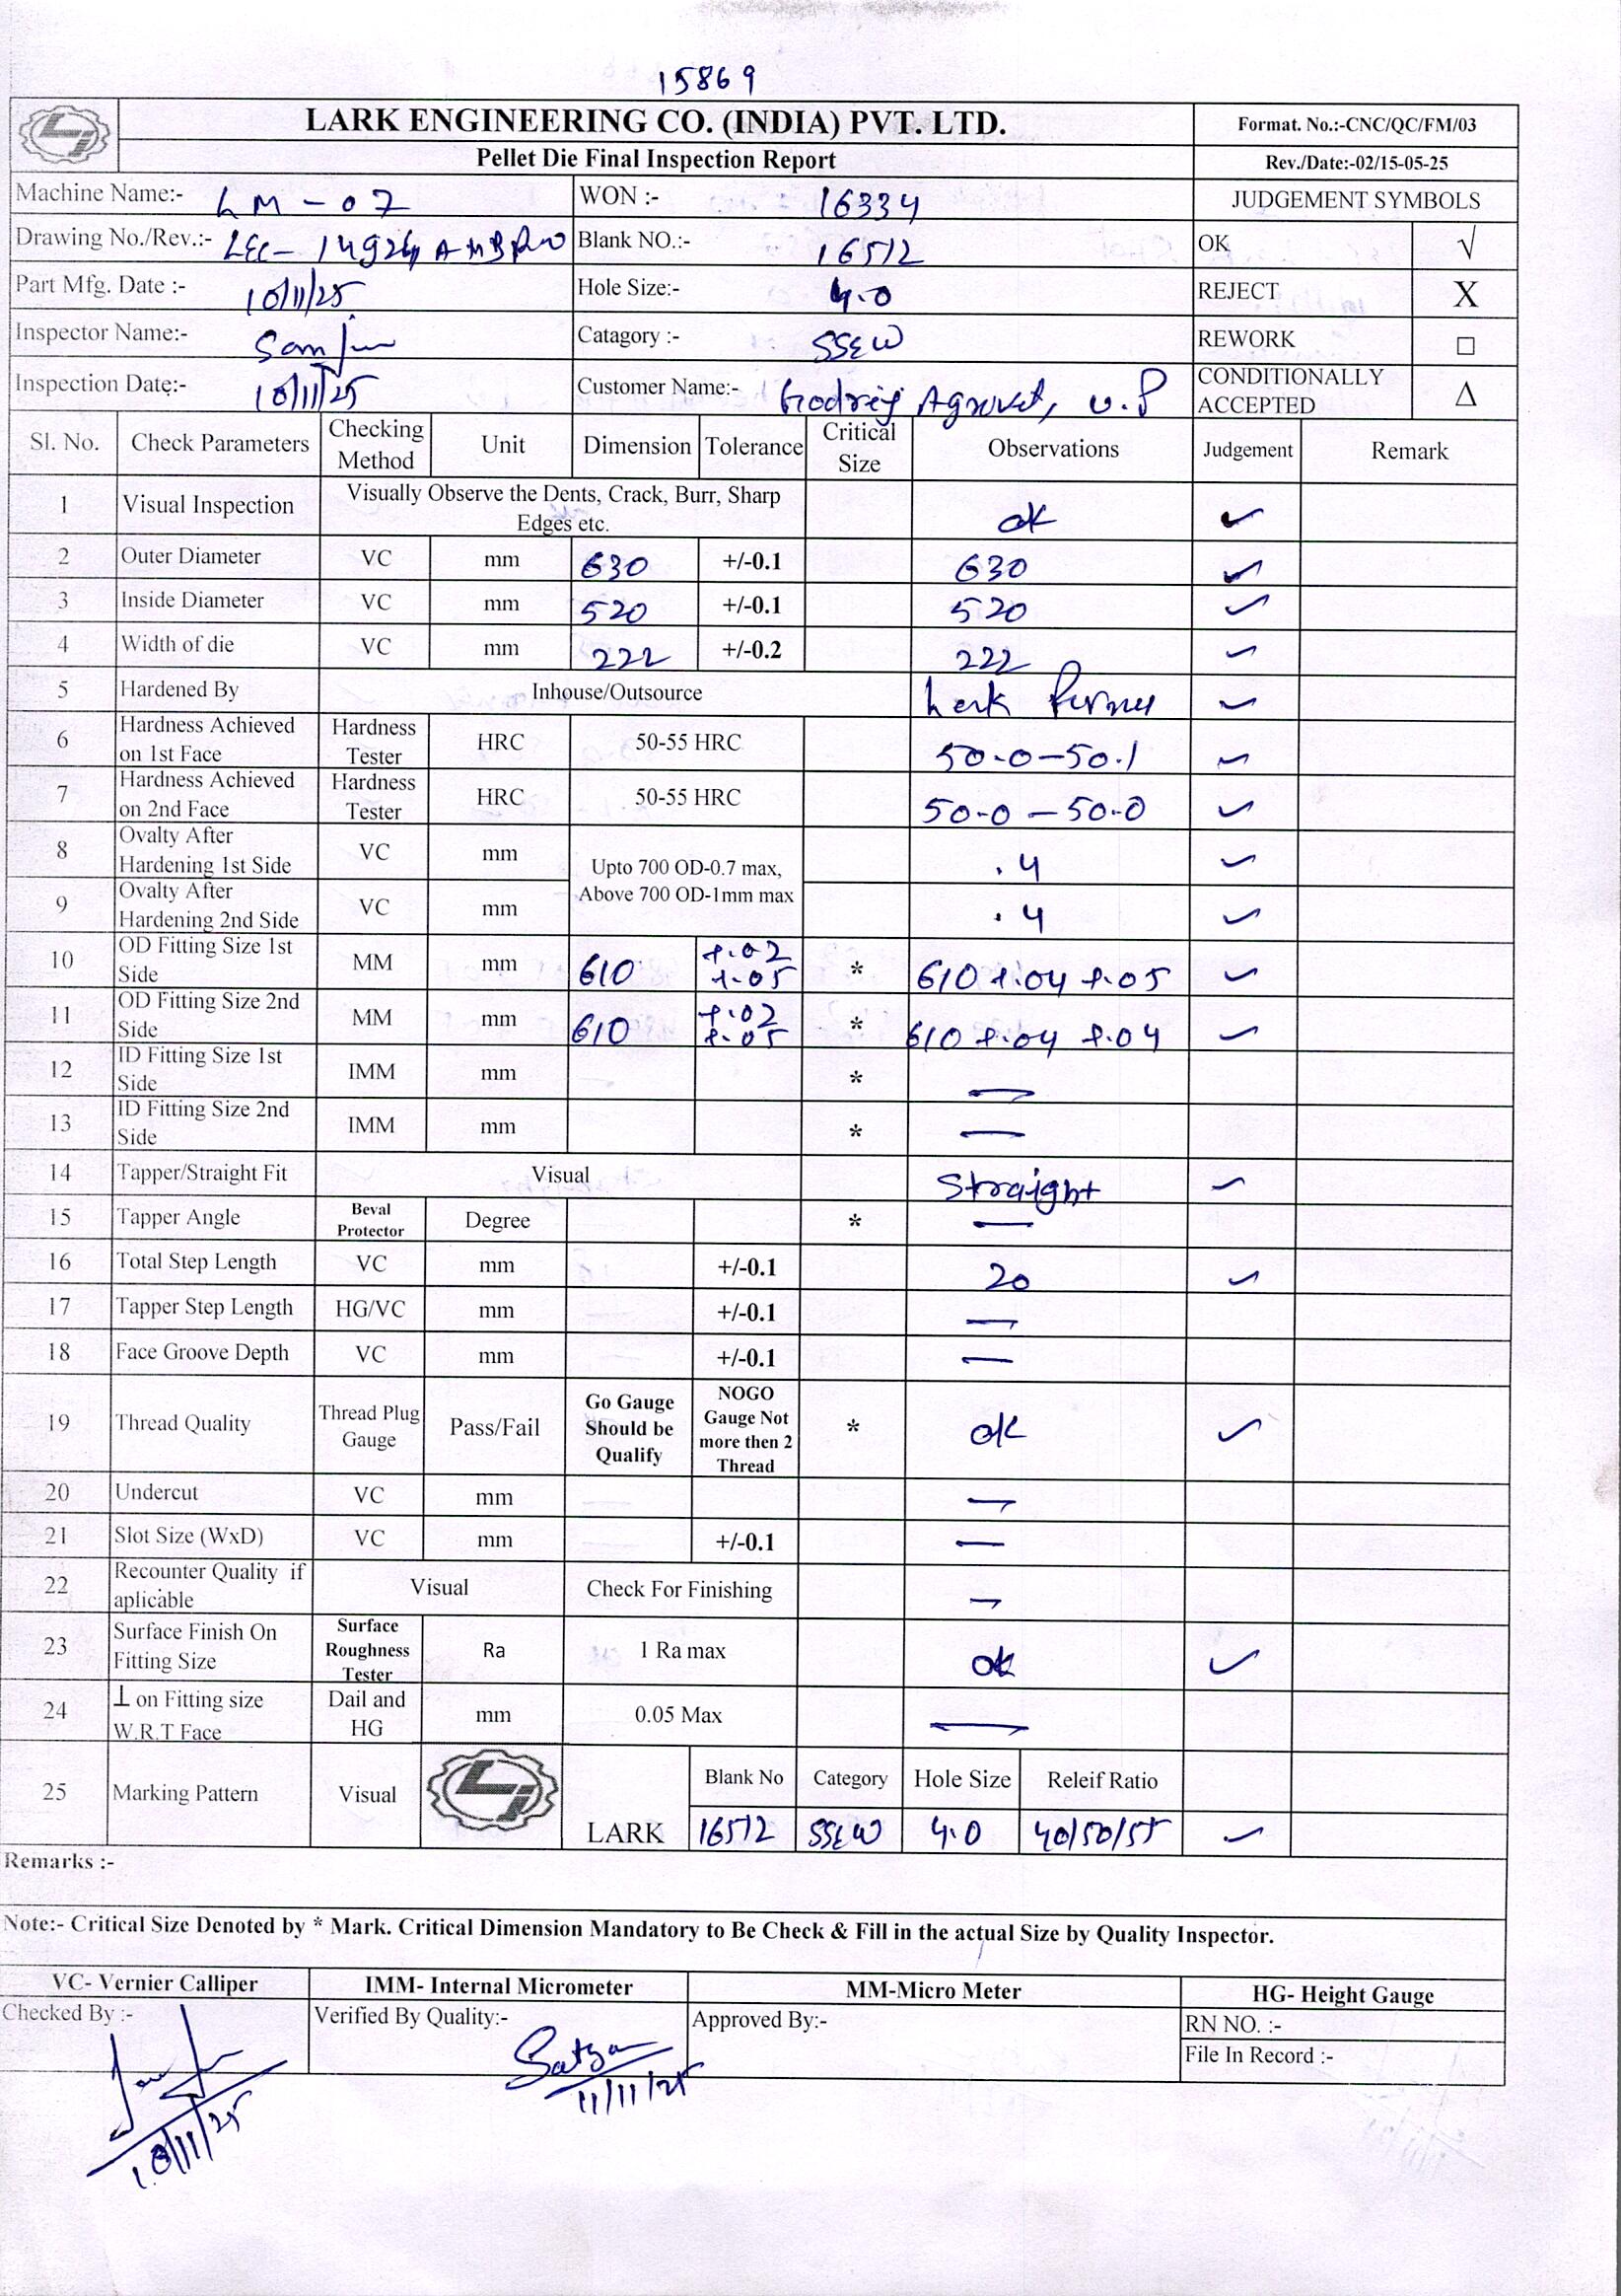 15869
LARK ENGINEERING CO. (INDIA) PVT. LTD.
Format. No.:-CNC/QC/FM/03
Pellet Die Final Inspection Report
Rev./Date:-02/15-05-25
Machine Name:- LM-07 WON :- 16334 JUDGEMENT SYMBOLS
Drawing No./Rev.:- LEC- Blank NO.:- 16512 OK √
Part Mfg. Date :- 10/11/25 Hole Size:- 4.0 REJECT X
Inspector Name:- Catagory :- SSEW REWORK □
Inspection Date:- 10/11/25 Customer Name:- Godrej Agrovet, U.P CONDITIONALLY ACCEPTED Δ
Sl. No. Check Parameters Checking Method Unit Dimension Tolerance Critical Size Observations Judgement Remark
1 Visual Inspection Visually Observe the Dents, Crack, Burr, Sharp Edges etc. ok ✓
2 Outer Diameter VC mm 630 +/-0.1 630 ✓
3 Inside Diameter VC mm 520 +/-0.1 520 ✓
4 Width of die VC mm 222 +/-0.2 222 ✓
5 Hardened By Inhouse/Outsource Lark ✓
6 Hardness Achieved on 1st Face Hardness Tester HRC 50-55 HRC 50.0-50.1 ✓
7 Hardness Achieved on 2nd Face Hardness Tester HRC 50-55 HRC 50.0-50.0 ✓
8 Ovalty After Hardening 1st Side VC mm Upto 700 OD-0.7 max, Above 700 OD-1mm max .4 ✓
9 Ovalty After Hardening 2nd Side VC mm .4 ✓
10 OD Fitting Size 1st Side MM mm 610 +.02 +.05 * 610 +.04 +.05 ✓
11 OD Fitting Size 2nd Side MM mm 610 +.02 +.05 * 610 +.04 +.04 ✓
12 ID Fitting Size 1st Side IMM mm * —
13 ID Fitting Size 2nd Side IMM mm * —
14 Tapper/Straight Fit Visual Straight ✓
15 Tapper Angle Beval Protector Degree * —
16 Total Step Length VC mm +/-0.1 20 ✓
17 Tapper Step Length HG/VC mm +/-0.1 —
18 Face Groove Depth VC mm +/-0.1 —
19 Thread Quality Thread Plug Gauge Pass/Fail Go Gauge Should be Qualify NOGO Gauge Not more then 2 Thread * ok ✓
20 Undercut VC mm —
21 Slot Size (WxD) VC mm +/-0.1 —
22 Recounter Quality if aplicable Visual Check For Finishing —
23 Surface Finish On Fitting Size Surface Roughness Tester Ra 1 Ra max ok ✓
24 ⊥ on Fitting size W.R.T Face Dail and HG mm 0.05 Max —
25 Marking Pattern Visual LARK Blank No Category Hole Size Releif Ratio
16512 SSEW 4.0 40/50/55 ✓
Remarks :-
Note:- Critical Size Denoted by * Mark. Critical Dimension Mandatory to Be Check & Fill in the actual Size by Quality Inspector.
VC- Vernier Calliper IMM- Internal Micrometer MM-Micro Meter HG- Height Gauge
Checked By :- Verified By Quality:- Approved By:- RN NO. :-
File In Record :-
Satya
11/11/25
10/11/25